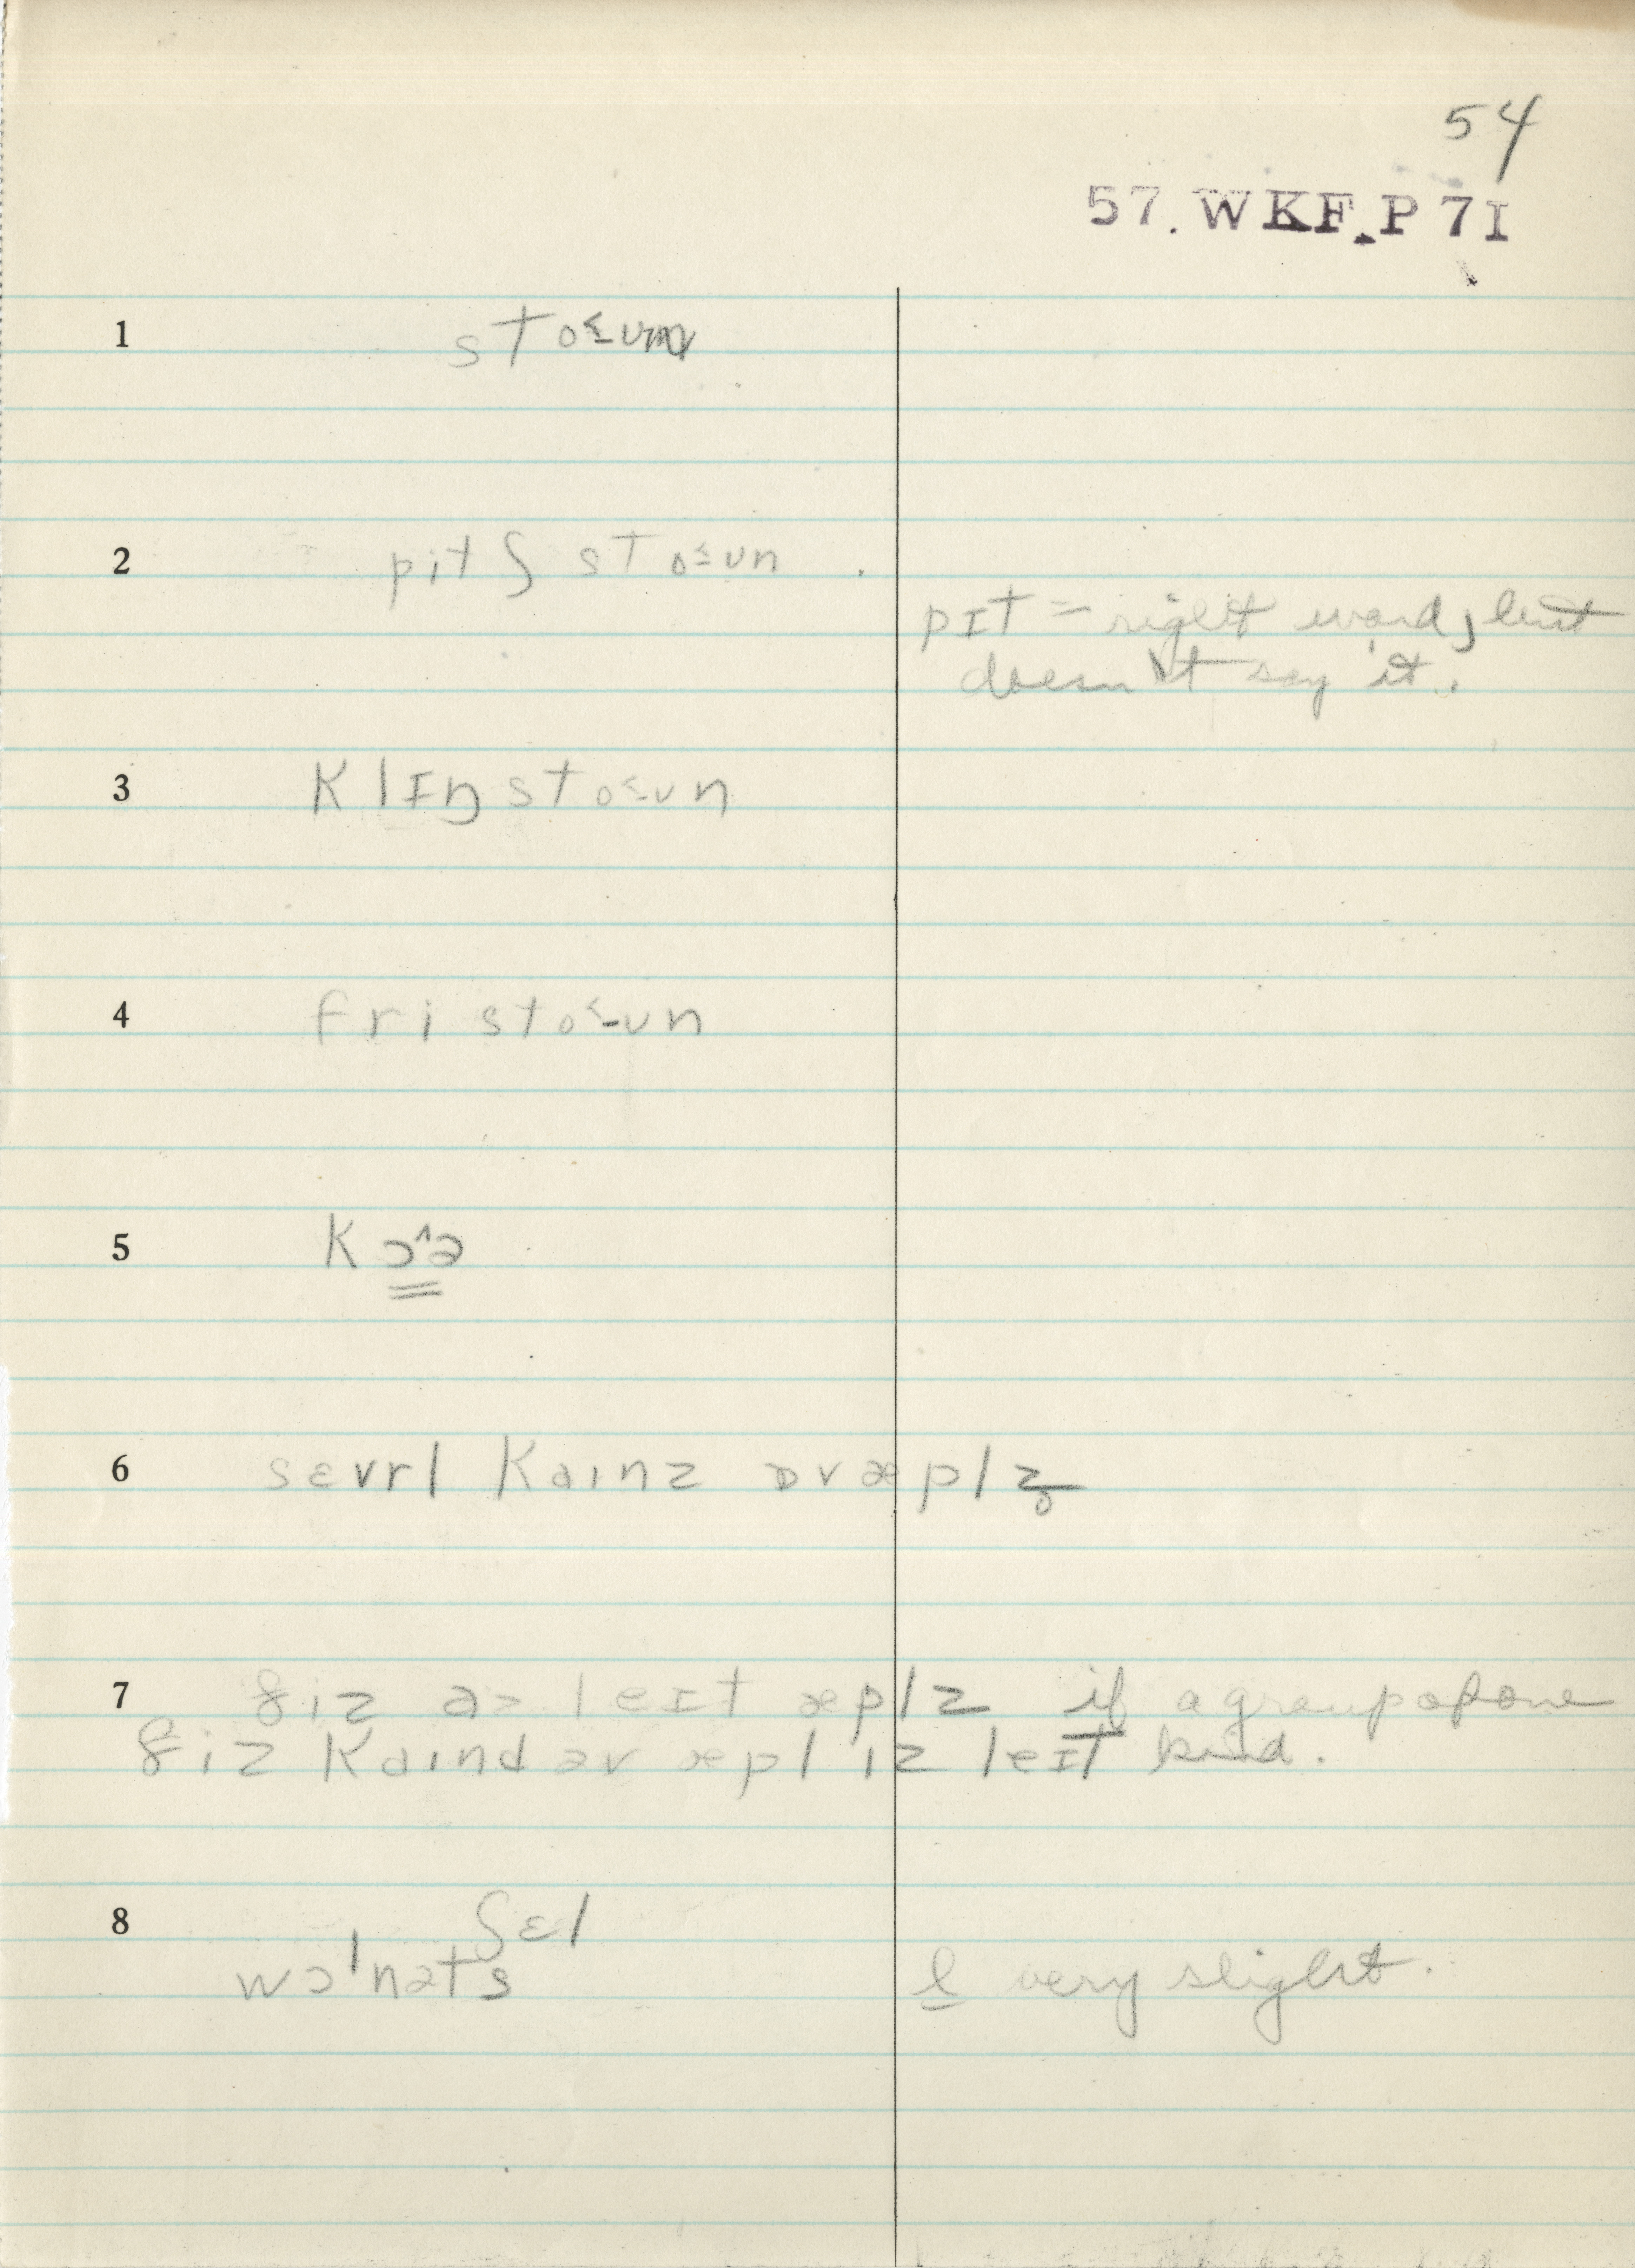 54
57.WKF.P7I
1 stoʊn
2 pitʃ stoʊn
pɪt = right word, but
doesn't say it.
3 klɪŋ stoʊn
4 fri stoʊn
5 kɔ^ə
6 sɛvrl kainz ɒv æplz̥
7 ðiz aɚ leɪt æplz if a group of one
ðiz kaind əv æpl iz leɪt kind.
8 ʃɛl
wɔlnəts
l very slight.